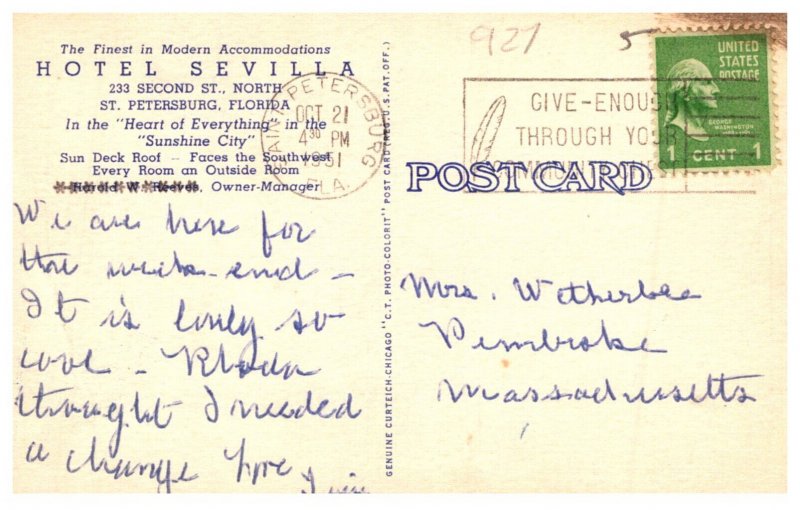 The Finest in Modern Accommodations
HOTEL SEVILLA
233 SECOND ST., NORTH
ST. PETERSBURG, FLORIDA
In the "Heart of Everything" in the
"Sunshine City"
Sun Deck Roof — Faces the Southwest
Every Room an Outside Room
Harold W. Reeves, Owner-Manager
We are here for
the week-end -
It is lovely so
cool - Rhoda
thought I needed
a change
GENUINE CURTEICH-CHICAGO "C.T. PHOTO-COLORIT" POST CARD (REG. U.S. PAT. OFF.)
SAINT PETERSBURG
OCT 21
4 30 PM
1951
FLA.
927
5
GIVE-ENOUGH
THROUGH YOUR
COMMUNITY CHEST
UNITED
STATES
POSTAGE
GEORGE
WASHINGTON
1 CENT 1
POST CARD
Mrs. Wetherbee
Pembroke
Massachusetts